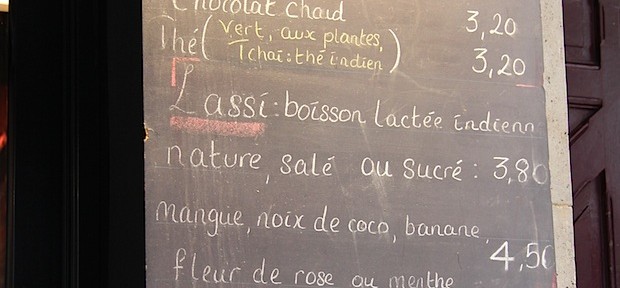 Chocolat Chaud 3,20
Thé (Vert, aux plantes,
Tchaï: thé indien) 3,20
Lassi: boisson lactée indienn
nature, salé ou sucré: 3,80
mangue, noix de coco, banane,
4,50
fleur de rose ou menthe